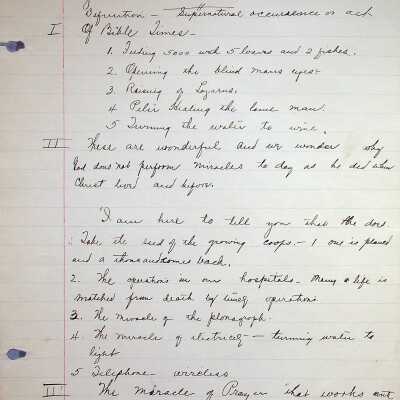 Definition - Supernatural occurrence or act
I Of Bible Times -
1. Feeding 5000 with 5 loaves and 2 fishes.
2. Opening the blind mans eyes -
3. Raising of Lazarus.
4 Peter Healing the lame man.
5 Turning the water to wine.
II These are wonderful and we wonder why
God does not perform miracles to day as he did when
Christ lived and before.
I am here to tell you that He does.
1. Take the seed of the growing crops. - 1 one is planed
and a thousand comes back.
2. The operations in our hospitals. Many a life is
snatched from death by timely operations.
3. The miracle of the phonograph.
4. The miracle of electricity - turning water to
light
5 Telephone - wireless
III The miracle of Prayer that works